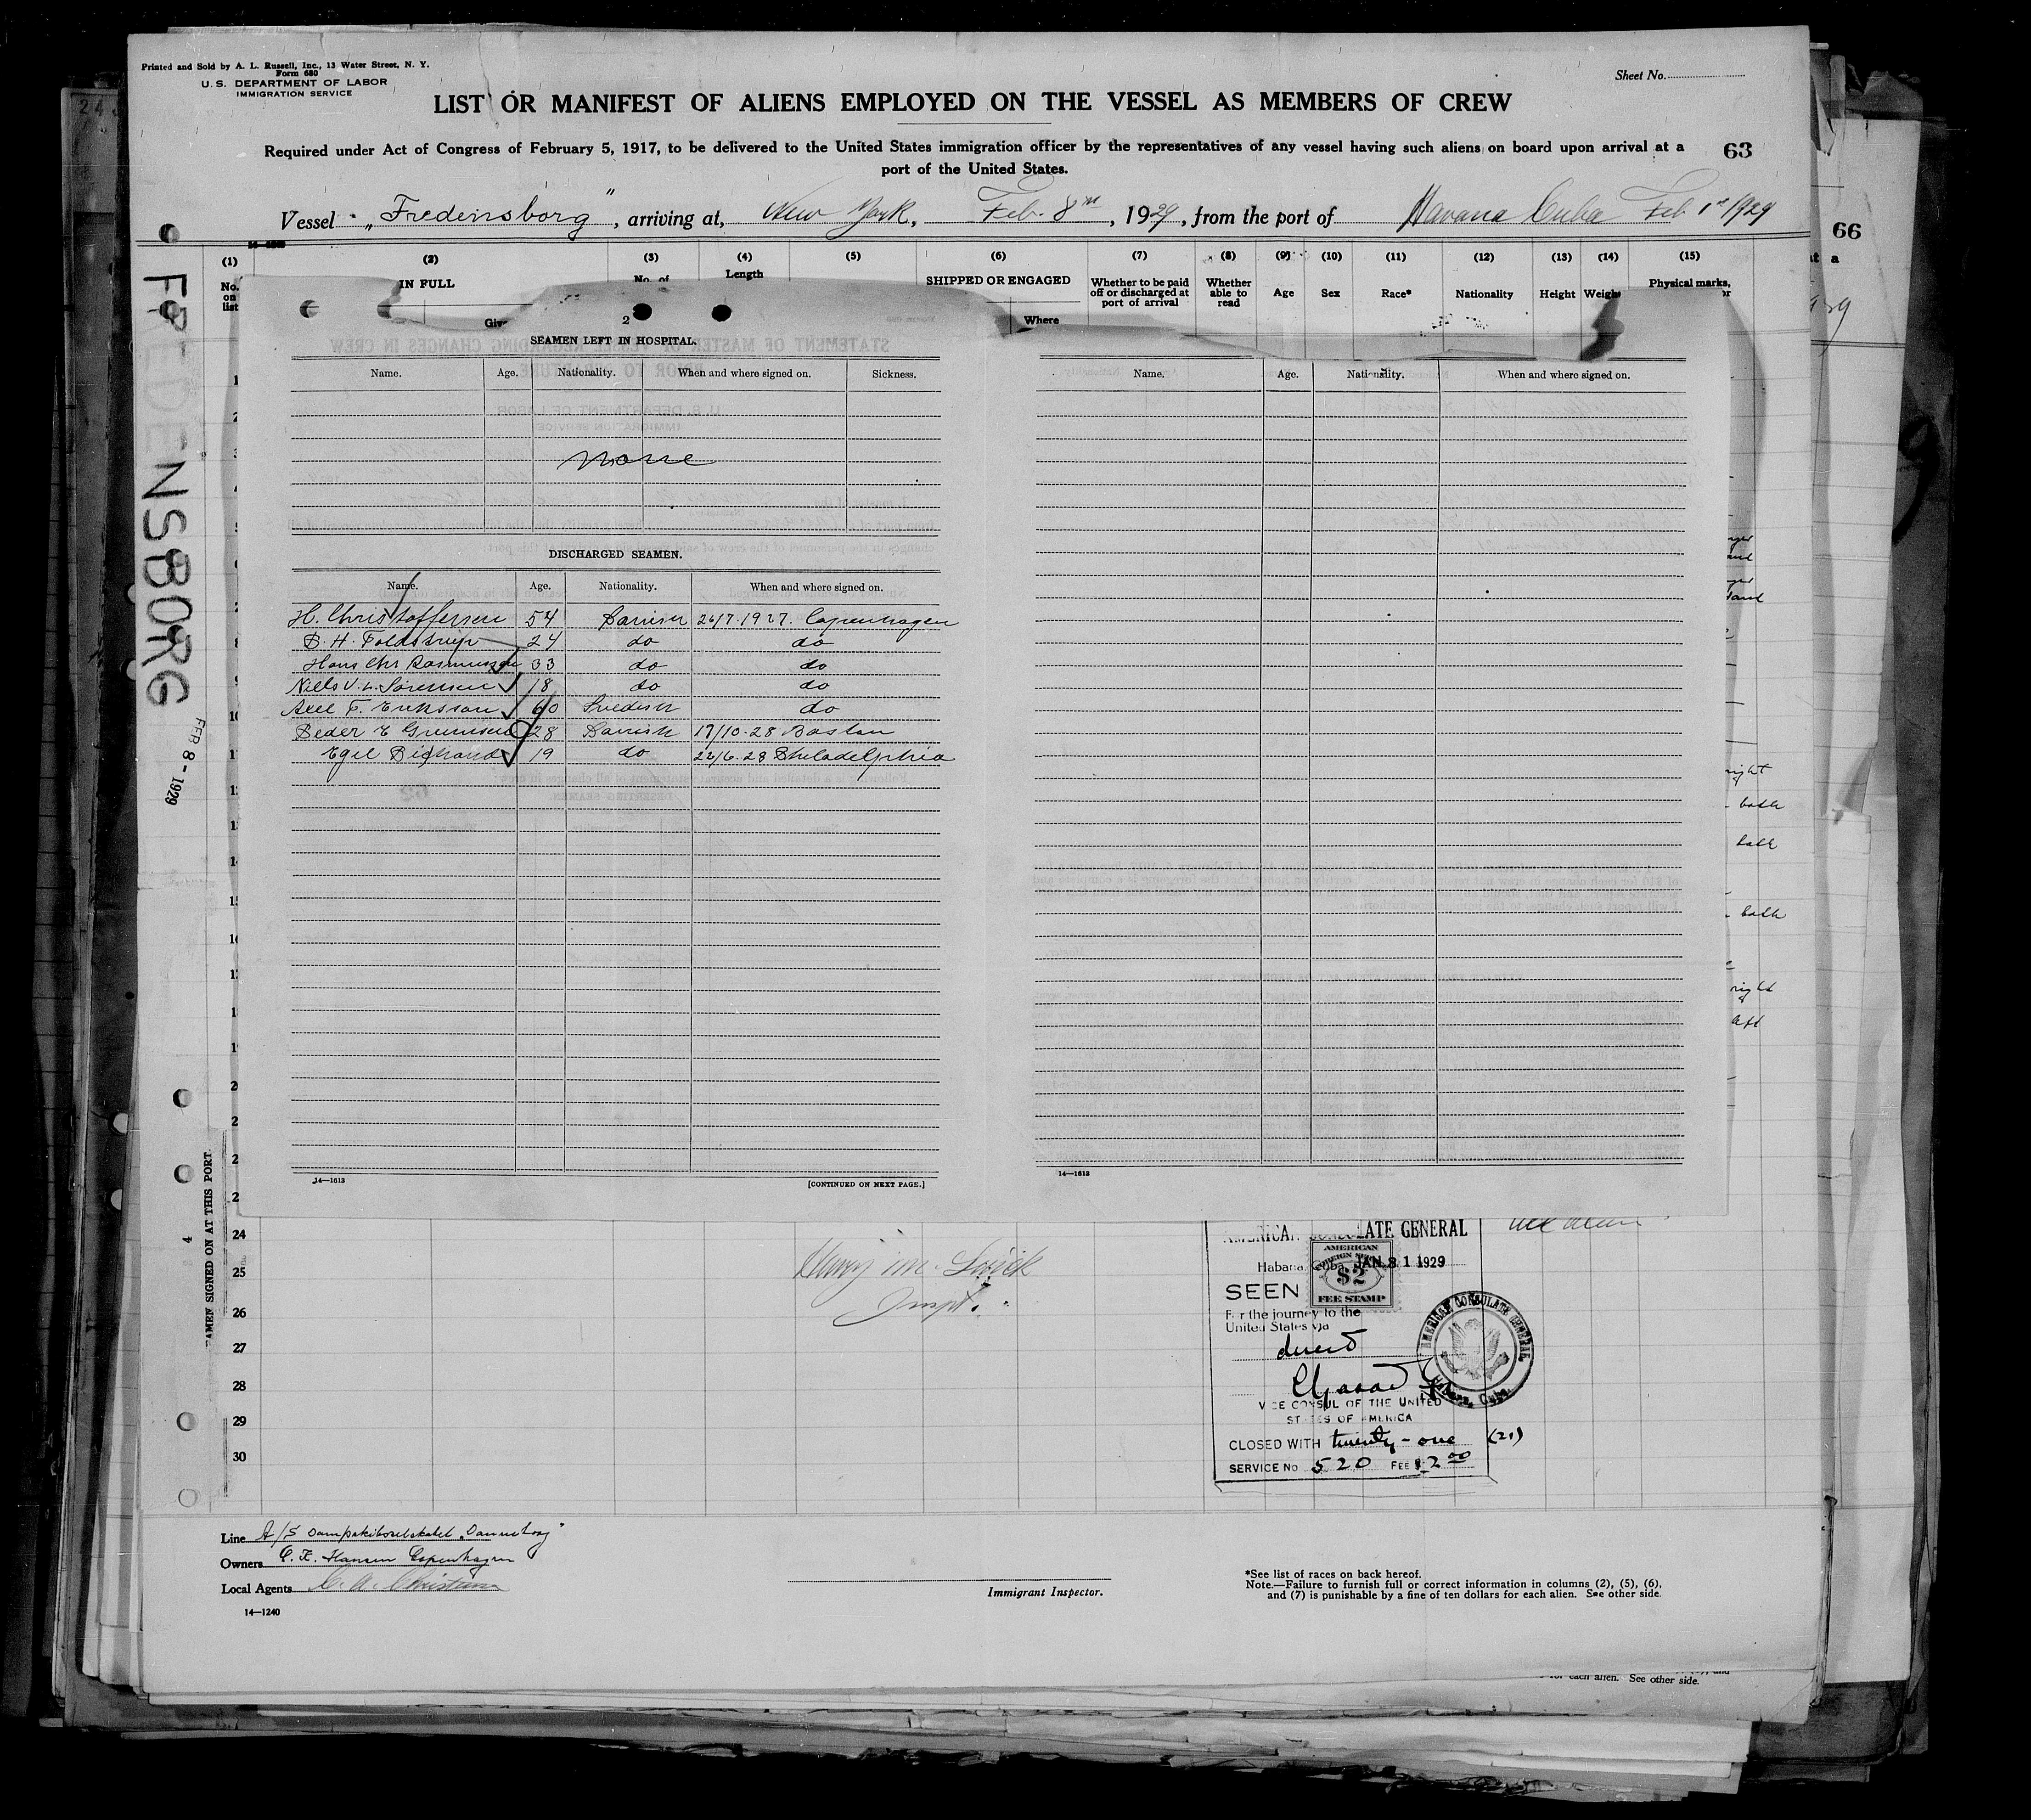 Printed and Sold by A. L. Russell, Inc., 13 Water Street, N. Y.
Form 680
U. S. DEPARTMENT OF LABOR
IMMIGRATION SERVICE
Sheet No.
LIST OR MANIFEST OF ALIENS EMPLOYED ON THE VESSEL AS MEMBERS OF CREW
Required under Act of Congress of February 5, 1917, to be delivered to the United States immigration officer by the representatives of any vessel having such aliens on board upon arrival at a
port of the United States.
63
Vessel "Fredensborg", arriving at, New York, Feb. 8th, 1929, from the port of Havana Cuba Feb 1st 1929
66
(1) (2) (3) (4) (5) (6) (7) (8) (9) (10) (11) (12) (13) (14) (15)
No. on list
IN FULL
No. of
Length
SHIPPED OR ENGAGED
Where
Whether to be paid off or discharged at port of arrival
Whether able to read
Age
Sex
Race*
Nationality
Height
Weight
Physical marks,
FREDENSBORG
FEB 8 - 1929
2
SEAMEN LEFT IN HOSPITAL.
Name. Age. Nationality. When and where signed on. Sickness.
none
DISCHARGED SEAMEN.
Name. Age. Nationality. When and where signed on.
H. Christoffersen 54 Danish 26/7. 1927. Copenhagen
B. H. Foldstrup 24 do do
Hans Chr Rasmussen 33 do do
Niels V. L. Sörensen 18 do do
Axel F. Eriksson 60 Swedish do
Peder E 28 Danish 17/10-28 Boston
Egil 19 do 22/6-28 Philadelphia
14—1613
[CONTINUED ON NEXT PAGE.]
Name. Age. Nationality. When and where signed on.
14—1613
right
both
both
right
SEAMEN SIGNED ON AT THIS PORT
4
24
25
26
27
28
29
30
Inspt.
AMERICAN CONSULATE GENERAL
Habana, Cuba, JAN 31 1929
AMERICAN
FOREIGN SERVICE
$2
FEE STAMP
SEEN
For the journey to the
United States via
direct
AMERICAN CONSULATE GENERAL
Habana, Cuba.
VICE CONSUL OF THE UNITED
STATES OF AMERICA
CLOSED WITH twenty-one (21)
SERVICE No 520 FEE $2.00
Line A/S Dampskibsselskabet "Danneborg"
Owners C. K. Hansen Copenhagen
Local Agents
Immigrant Inspector.
14—1240
*See list of races on back hereof.
Note.—Failure to furnish full or correct information in columns (2), (5), (6),
and (7) is punishable by a fine of ten dollars for each alien. See other side.
for each alien. See other side.